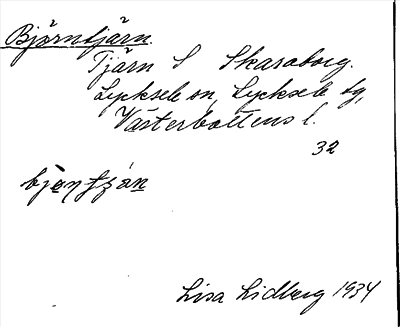 Björntjärn.
Tjärn S Skaraborg.
Lycksele sn, Lycksele sg,
Västerbottens l.
32
Lisa Lidberg 1934